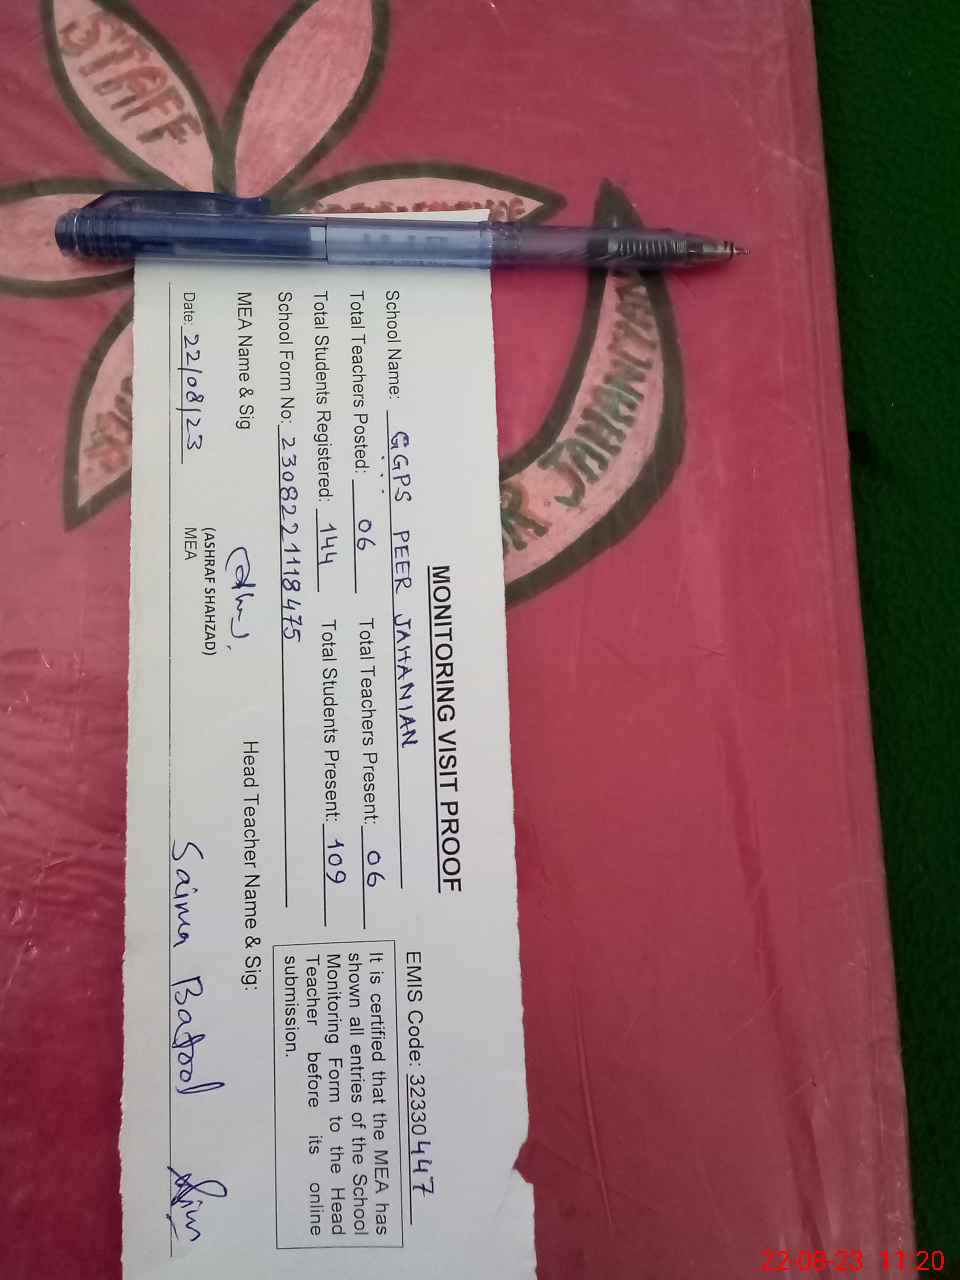 STAFF
JAHANIAN
MONITORING VISIT PROOF
School Name: GGPS PEER JAHANIAN
EMIS Code: 32330447
Total Teachers Posted: 06 Total Teachers Present: 06
Total Students Registered: 144 Total Students Present: 109
School Form No: 2308221118475
It is certified that the MEA has
shown all entries of the School
Monitoring Form to the Head
Teacher before its online
submission.
MEA Name & Sig
Head Teacher Name & Sig:
(ASHRAF SHAHZAD)
MEA
Date: 22/08/23
Saima Batool
22-08-23 11:20